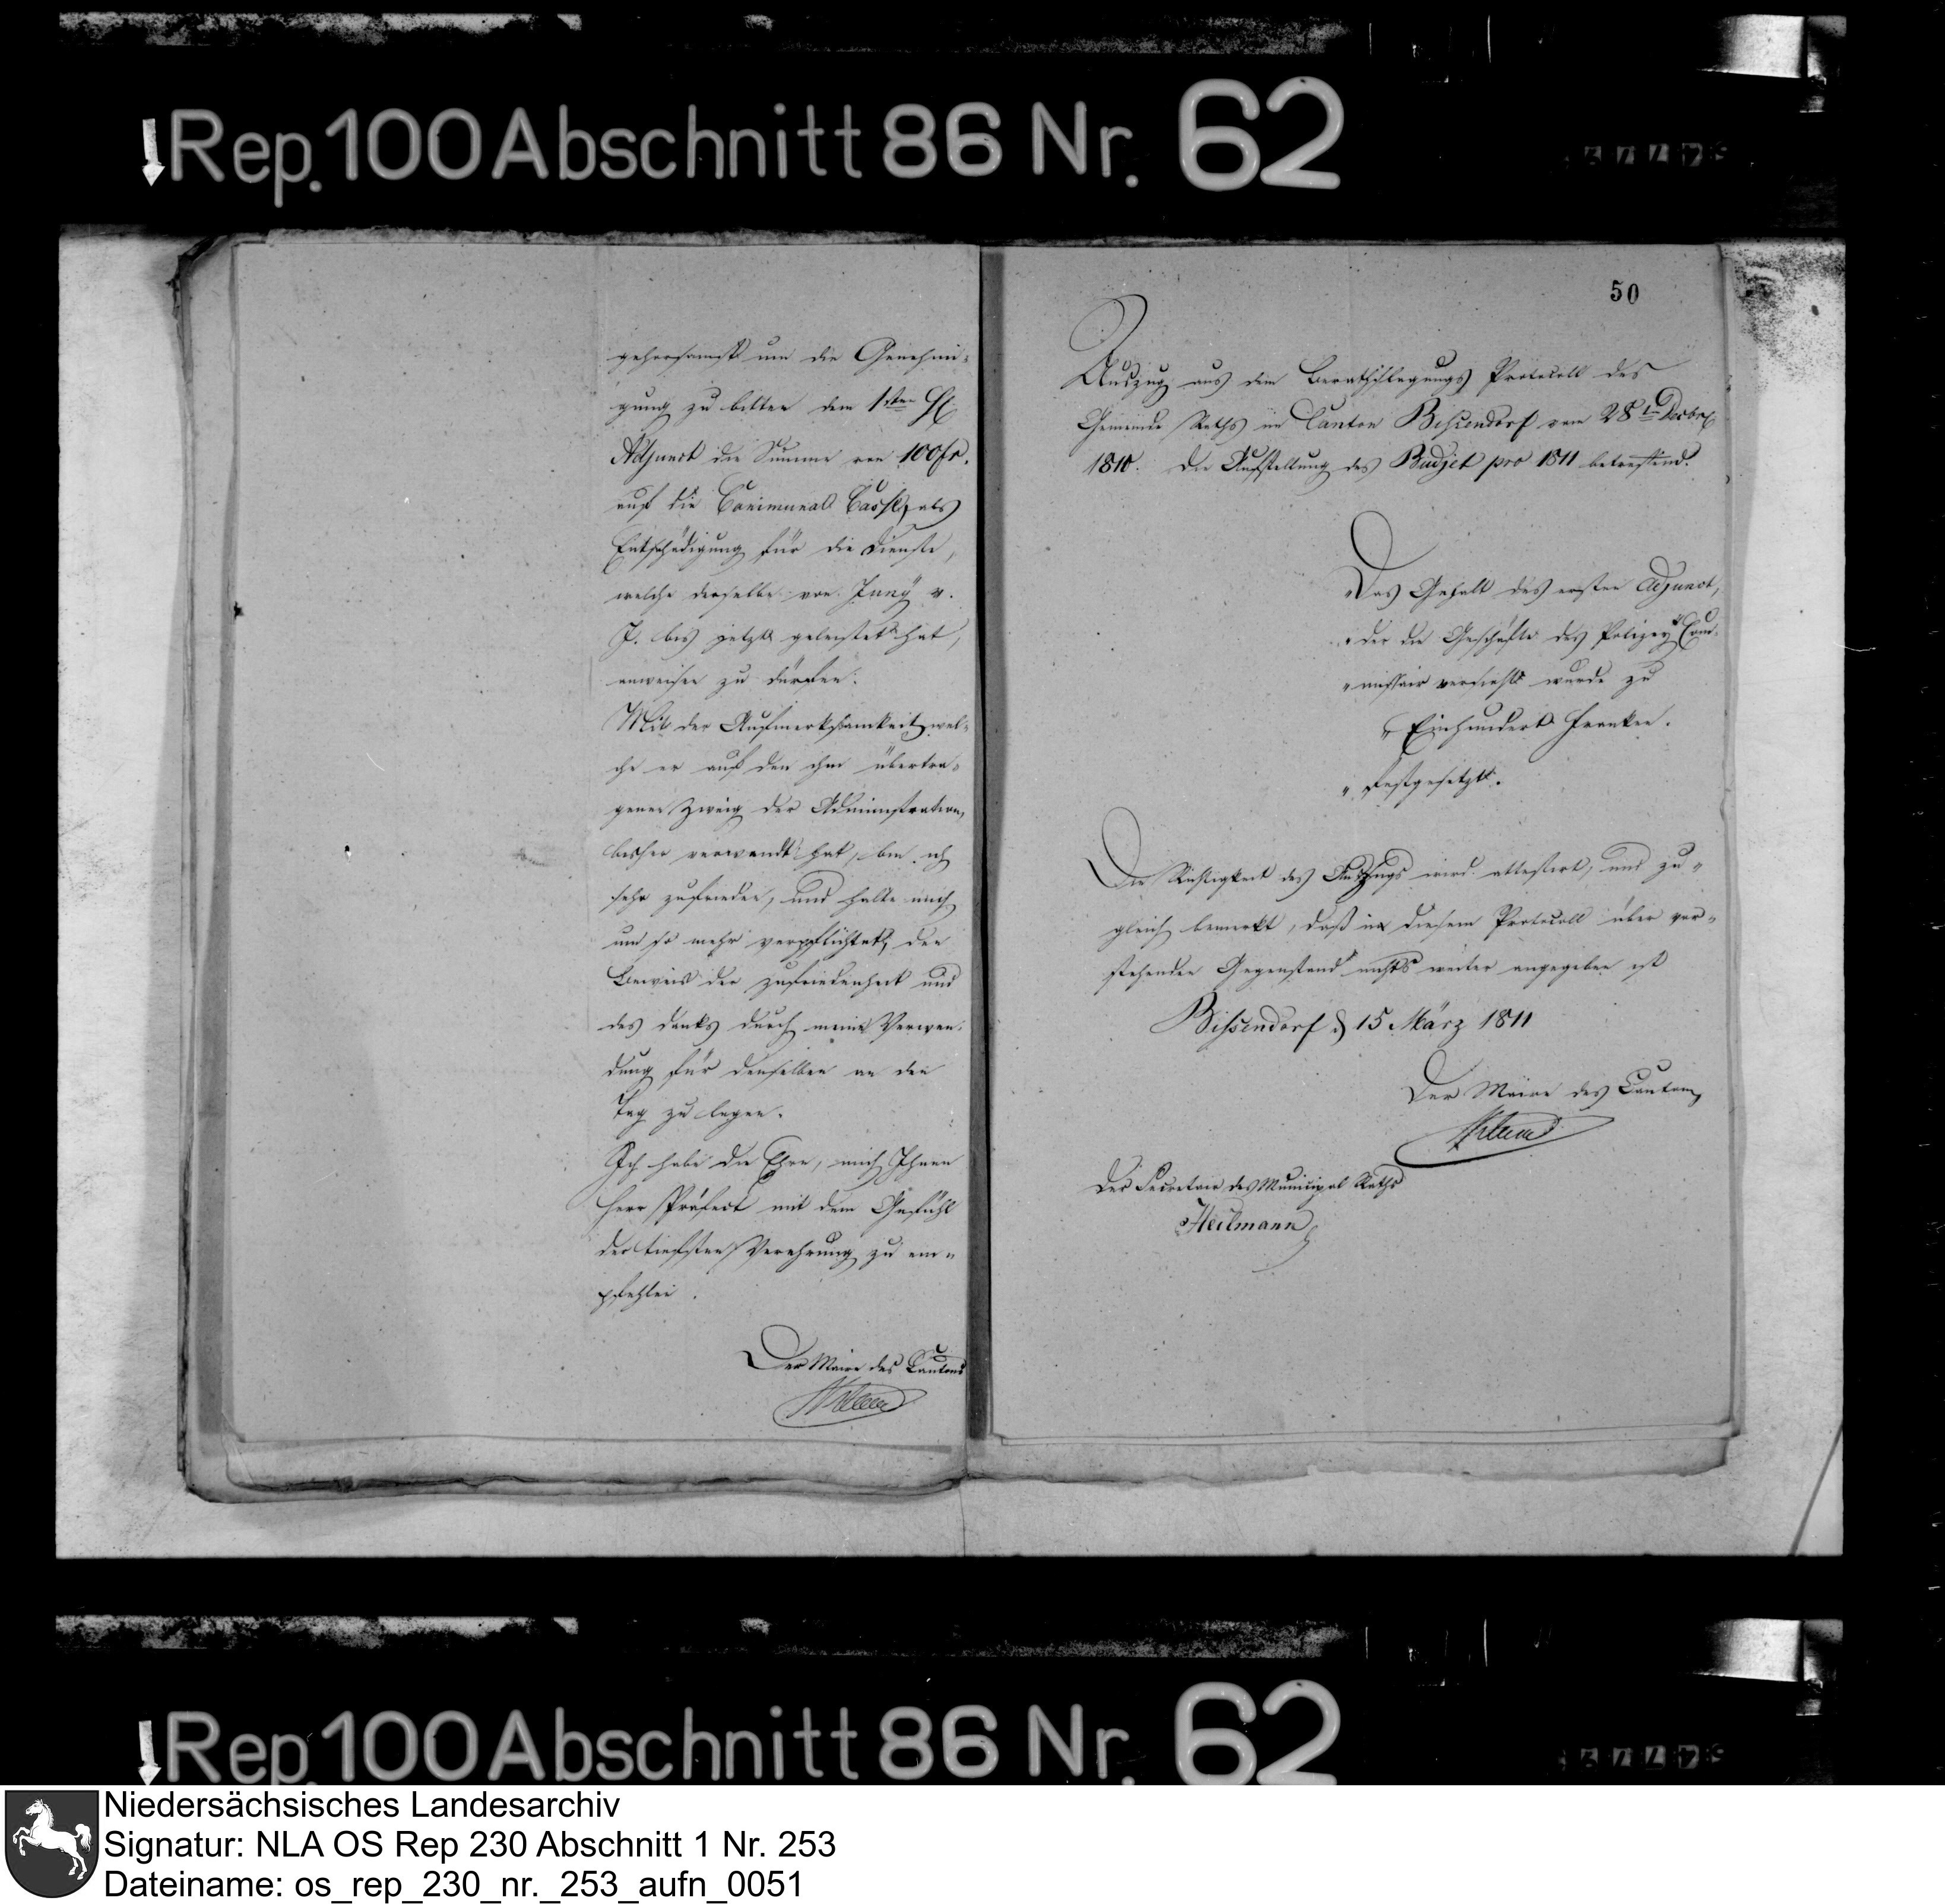 Rep. 100 Abschnitt 86 Nr. 62
gehorsamst um die Genehmi-
gung zu bitten dem 1sten H.
Adjunct die Summe von 100 fr.
auf die Communal Casse, als
Entschädigung für die Dienste,
welche derselbe von Juny v.
J. bis jetzt geleistet hat,
anweisen zu dürfen.
Mit der Aufmerksamkeit, wel-
che er auf den ihm übertra-
genen Zweig der Administration,
bisher verwendt hat, bin ich
sehr zufrieden, und halte mich
um so mehr verpflichtet, den
Beweis der Zufriedenheit und
des Danks durch meine Verwen-
dung für denselben an den
Tag zu legen.
Ich habe die Ehre, mich Ihnen
Herr Präfect mit dem Gefühl
der tiefsten Verehrung zu em-
pfehlen.
Der Maire des Cantons
50
Auszug aus dem Berathschlagungs Protocoll des
Gemeinde Raths im Canton Bissendorf vom 28t Decbr
1810. Die Aufstellung des Budjet pro 1811 betreffend.
"Das Gehalt des ersten Adjunct,
"der die Geschäfte des Polizey Com-
"missair versieht wurde zu
"Einhundert Franken.
"festgesetzt.
Die Richtigkeit des Auszugs wird attestirt, und zu-
gleich bemerkt, daß in diesem Protocoll über vor-
stehenden Gegenstand nichts weiter angegeben ist
Bissendorf d 15 März 1811
Der Maire des Cantons
Der Secretair des Municipal Raths
Heilmann
Rep. 100 Abschnitt 86 Nr. 62
Niedersächsisches Landesarchiv
Signatur: NLA OS Rep 230 Abschnitt 1 Nr. 253
Dateiname: os_rep_230_nr._253_aufn_0051